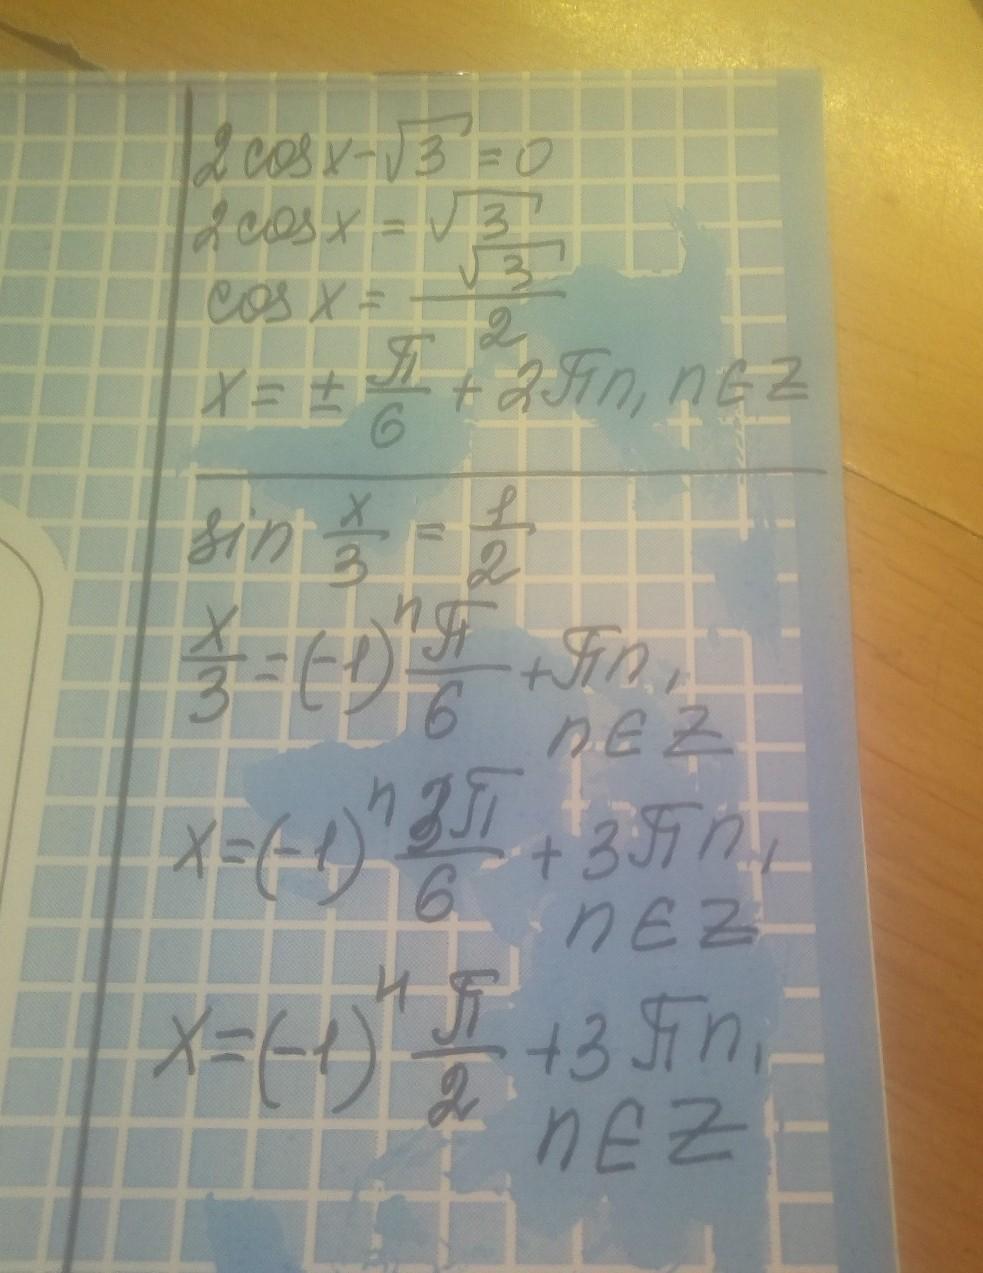 2cosx-√3=0
2cosx=√3
cosx=√3/2
x=±π/6+2πn, n∈Z
sin x/3=1/2
x/3=(-1)ⁿ π/6+πn,
n∈Z
x=(-1)ⁿ 3π/6+3πn,
n∈Z
x=(-1)ⁿ π/2+3πn,
n∈Z